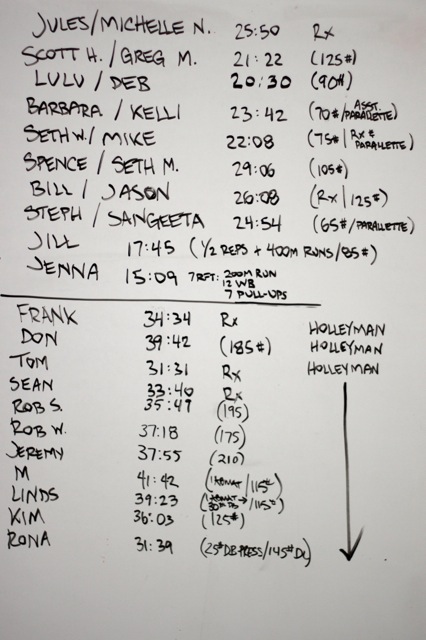 JULES/MICHELLE N. 25:50 Rx
SCOTT H./GREG M. 21:22 (125#)
LULU/DEB 20:30 (90#)
BARBARA/KELLI 23:42 (70#/ASST. PARALLETTE)
SETH W./MIKE 22:08 (75#/Rx + PARALLETTE)
SPENCE/SETH M. 29:06 (105#)
BILL/JASON 26:08 (Rx/125#)
STEPH/SANGEETA 24:54 (65#/PARALLETTE)
JILL 17:45 (1/2 REPS + 400M RUNS/85#)
JENNA 15:09 7RFT: 200M RUN
12 WB
7 PULL-UPS
FRANK 34:34 Rx HOLLEYMAN
DON 39:42 (185#) HOLLEYMAN
TOM 31:31 Rx HOLLEYMAN
SEAN 33:40 Rx
ROB S. 35:47 (195)
ROB W. 37:18 (175)
JEREMY 37:55 (210)
M 41:42 (1 ABMAT/115#)
LINDS 39:23 (1 ABMAT → /115#)
KIM 36:03 (125#)
RONA 31:39 (25# DB PRESS/145# DL)